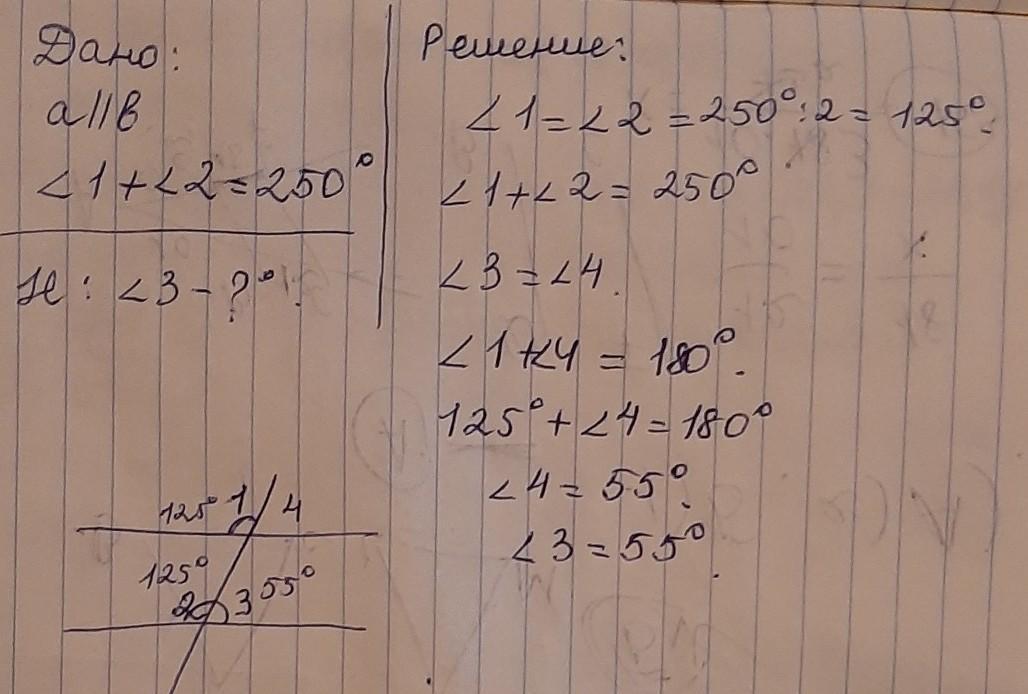 Дано:
a||b
∠1+∠2=250°
Н: ∠3-?°.
Решение:
∠1=∠2=250°:2=125°.
∠1+∠2=250°
∠3=∠4.
∠1+∠4=180°.
125°+∠4=180°
∠4=55°.
∠3=55°.
125° 1 4
125°
2 3 55°